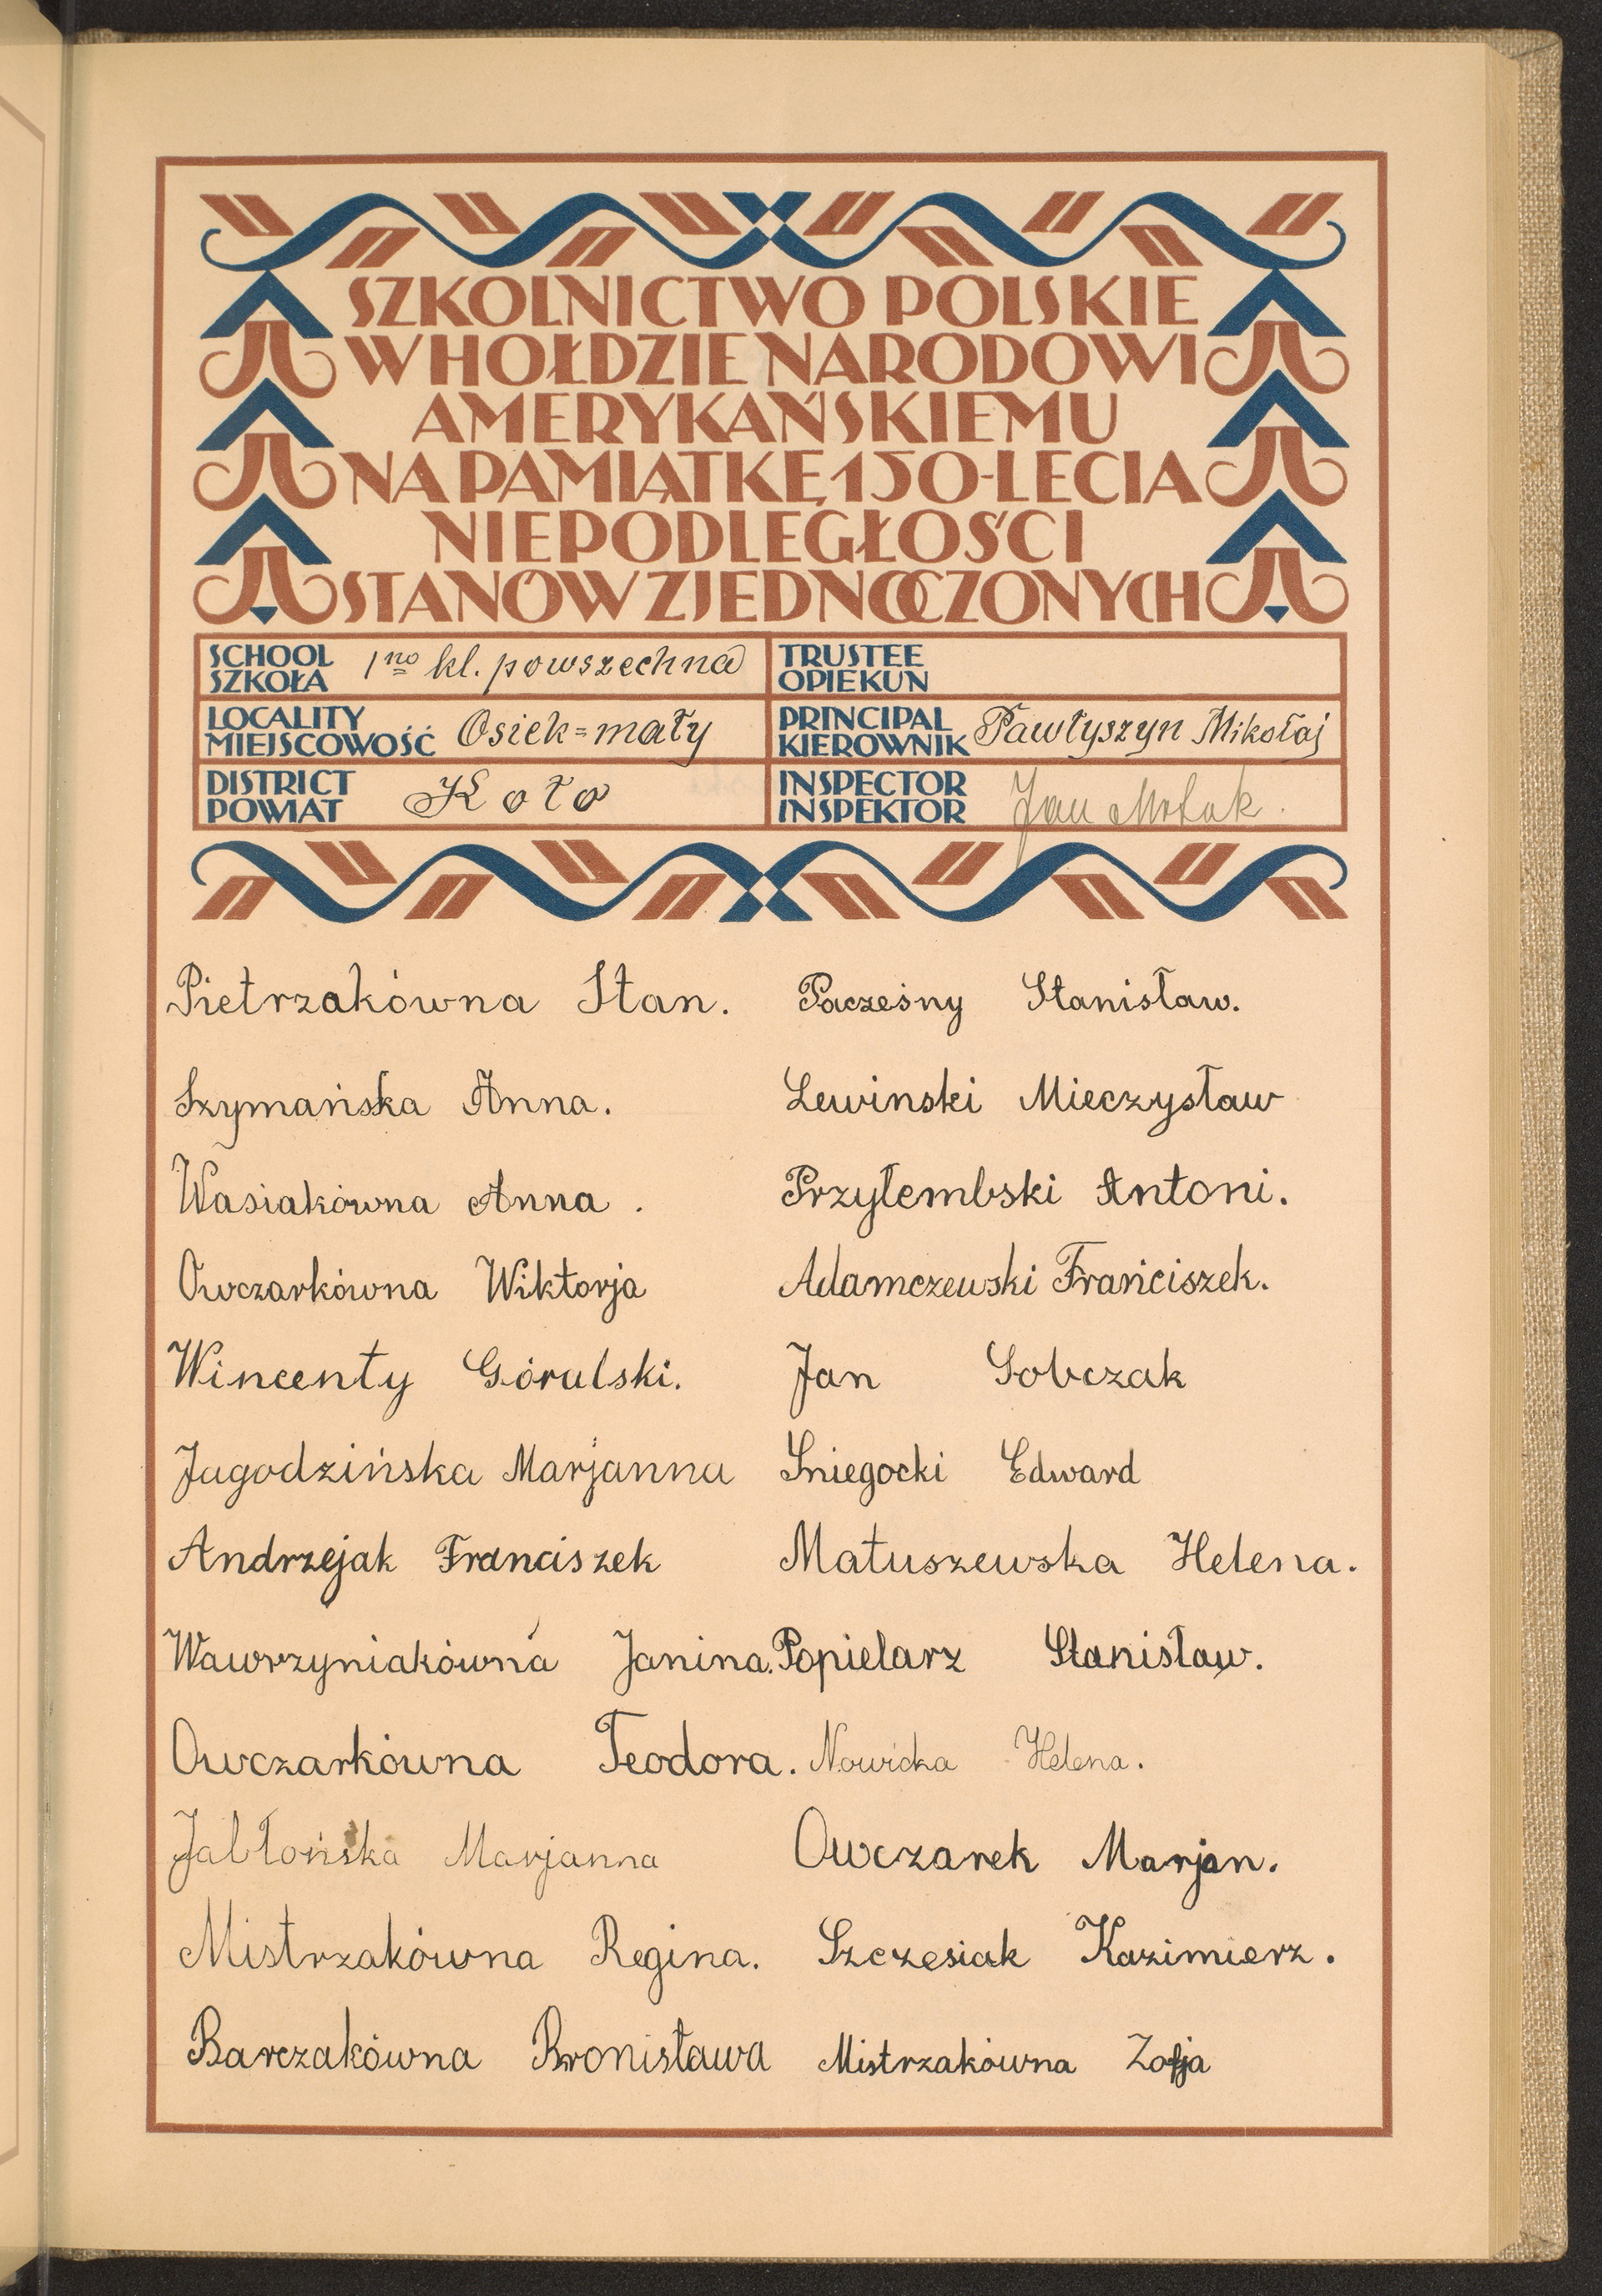 SZKOLNICTWO POLSKIE
W HOŁDZIE NARODOWI
AMERYKAŃSKIEMU
NA PAMIĄTKĘ 150-LECIA
NIEPODLEGŁOŚCI
STANÓW ZJEDNOCZONYCH
SCHOOL
SZKOŁA
1no kl. powszechna
TRUSTEE
OPIEKUN
LOCALITY
MIEJSCOWOŚĆ
Osiek=mały
PRINCIPAL
KIEROWNIK
Pawłyszyn Mikołaj
DISTRICT
POWIAT
Koło
INSPECTOR
INSPEKTOR
Jan
Pietrzakówna Stan.
Szymańska Anna.
Wasiakówna Anna.
Owczarkówna Wiktorja
Wincenty Góralski.
Jagodzińska Marjanna
Andrzejak Franciszek
Wawrzyniakówna Janina.
Owczarkówna Teodora.
Jabłońska Marjanna
Mistrzakówna Regina.
Barczakówna Bronisława
Pacześny Stanisław.
Lewinski Mieczysław
Przyłembski Antoni.
Adamczewski Franciszek.
Jan Sobczak
Sniegocki Edward
Matuszewska Helena.
Popielarz Stanisław.
Nowicka Helena.
Owczarek Marjan.
Szczesiak Kazimierz.
Mistrzakówna Zofja